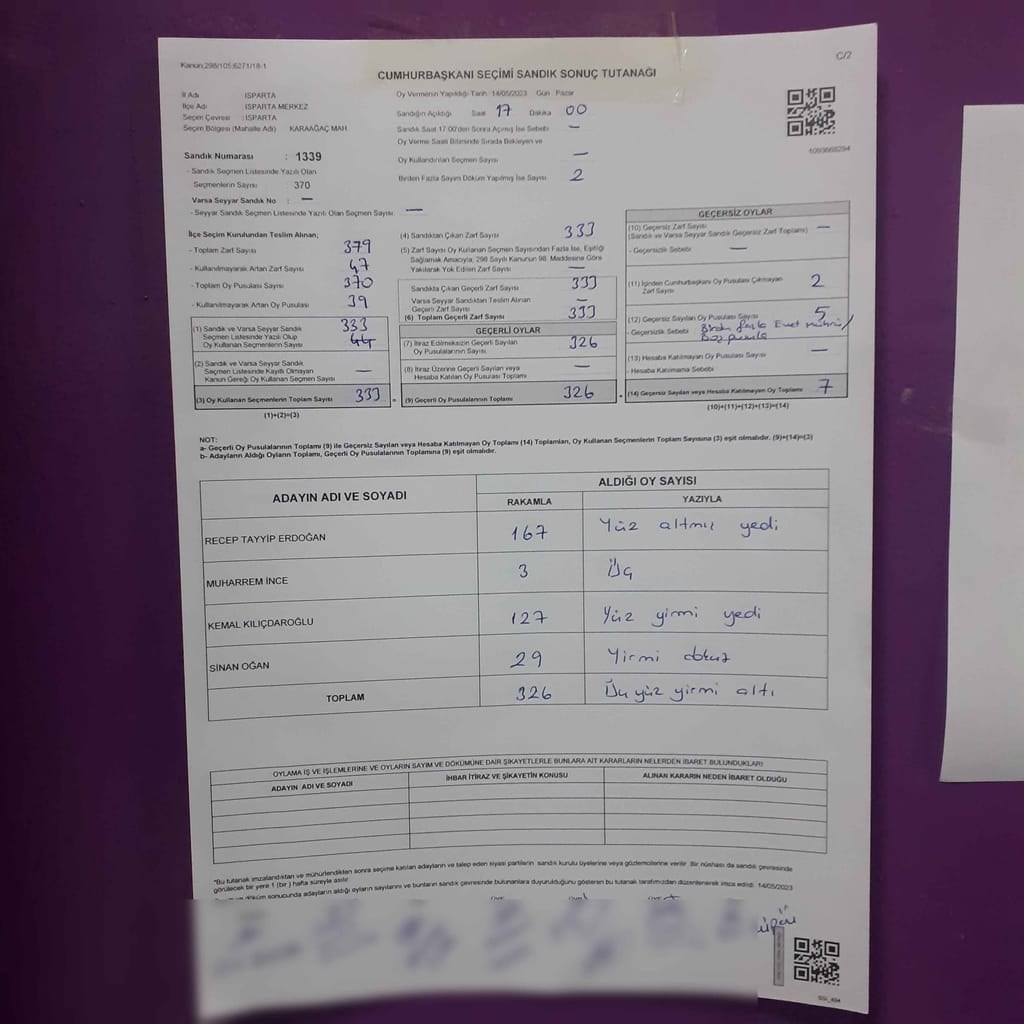 Kanun:298/105;6271/18-1
C/2
CUMHURBAŞKANI SEÇİMİ SANDIK SONUÇ TUTANAĞI
İl Adı : ISPARTA
İlçe Adı : ISPARTA MERKEZ
Seçim Çevresi : ISPARTA
Seçim Bölgesi (Mahalle Adı) KARAAĞAÇ MAH.
Oy Vermenin Yapıldığı Tarih: 14/05/2023 Gün Pazar
Sandığın Açıldığı Saat 17 Dakika 00
Sandık Saat 17:00'den Sonra Açılmış İse Sebebi —
Oy Verme Saati Bitiminde Sırada Bekleyen ve
Oy Kullandırılan Seçmen Sayısı —
Birden Fazla Sayım Döküm Yapılmış İse Sayısı 2
1093668294
Sandık Numarası : 1339
- Sandık Seçmen Listesinde Yazılı Olan
Seçmenlerin Sayısı : 370
Varsa Seyyar Sandık No : —
- Seyyar Sandık Seçmen Listesinde Yazılı Olan Seçmen Sayısı —
İlçe Seçim Kurulundan Teslim Alınan;
- Toplam Zarf Sayısı 379
- Kullanılmayarak Artan Zarf Sayısı 47
- Toplam Oy Pusulası Sayısı 370
- Kullanılmayarak Artan Oy Pusulası 39
(1) Sandık ve Varsa Seyyar Sandık
Seçmen Listesinde Yazılı Olup
Oy Kullanan Seçmenlerin Sayısı 333
(2) Sandık ve Varsa Seyyar Sandık
Seçmen Listesinde Kayıtlı Olmayan
Kanun Gereği Oy Kullanan Seçmen Sayısı —
(3) Oy Kullanan Seçmenlerin Toplam Sayısı 333 =
(1)+(2)=(3)
(4) Sandıktan Çıkan Zarf Sayısı 333
(5) Zarf Sayısı Oy Kullanan Seçmen Sayısından Fazla İse, Eşitliği
Sağlamak Amacıyla, 298 Sayılı Kanunun 98. Maddesine Göre
Yakılarak Yok Edilen Zarf Sayısı —
Sandıkta Çıkan Geçerli Zarf Sayısı 333
Varsa Seyyar Sandıktan Teslim Alınan
Geçerli Zarf Sayısı —
(6) Toplam Geçerli Zarf Sayısı 333
GEÇERLİ OYLAR
(7) İtiraz Edilmeksizin Geçerli Sayılan
Oy Pusulalarının Sayısı 326
(8) İtiraz Üzerine Geçerli Sayılan veya
Hesaba Katılan Oy Pusulası Toplamı —
(9) Geçerli Oy Pusulalarının Toplamı 326 +
GEÇERSİZ OYLAR
(10) Geçersiz Zarf Sayısı
(Sandık ve Varsa Seyyar Sandık Geçersiz Zarf Toplamı) —
- Geçersizlik Sebebi —
(11) İçinden Cumhurbaşkanı Oy Pusulası Çıkmayan
Zarf Sayısı 2
(12) Geçersiz Sayılan Oy Pusulası Sayısı 5
- Geçersizlik Sebebi Birden fazla Evet mührü/
Boş pusula
(13) Hesaba Katılmayan Oy Pusulası Sayısı —
- Hesaba Katılmama Sebebi
(14) Geçersiz Sayılan veya Hesaba Katılmayan Oy Toplamı 7
(10)+(11)+(12)+(13)=(14)
NOT:
a- Geçerli Oy Pusulalarının Toplamı (9) ile Geçersiz Sayılan veya Hesaba Katılmayan Oy Toplamı (14) Toplamları, Oy Kullanan Seçmenlerin Toplam Sayısına (3) eşit olmalıdır. (9)+(14)=(3)
b- Adayların Aldığı Oyların Toplamı, Geçerli Oy Pusulalarının Toplamına (9) eşit olmalıdır.
ADAYIN ADI VE SOYADI
ALDIĞI OY SAYISI
RAKAMLA YAZIYLA
RECEP TAYYİP ERDOĞAN 167 Yüz altmış yedi
MUHARREM İNCE 3 Üç
KEMAL KILIÇDAROĞLU 127 Yüz yirmi yedi
SİNAN OĞAN 29 Yirmi dokuz
TOPLAM 326 Üç yüz yirmi altı
OYLAMA İŞ VE İŞLEMLERİNE VE OYLARIN SAYIM VE DÖKÜMÜNE DAİR ŞİKAYETLERLE BUNLARA AİT KARARLARIN NELERDEN İBARET BULUNDUKLARI
ADAYIN ADI VE SOYADI İHBAR İTİRAZ VE ŞİKAYETİN KONUSU ALINAN KARARIN NEDEN İBARET OLDUĞU
*Bu tutanak imzalandıktan ve mühürlendikten sonra seçime katılan adayların ve talep eden siyasi partilerin sandık kurulu üyelerine veya gözlemcilerine verilir. Bir nüshası da sandık çevresinde
görülecek bir yere 1 (bir) hafta süreyle asılır.
ve döküm sonucunda adayların aldığı oyların sayılarını ve bunların sandık çevresinde bulunanlara duyurulduğunu gösteren bu tutanak tarafımızdan düzenlenerek imza edildi. 14/05/2023